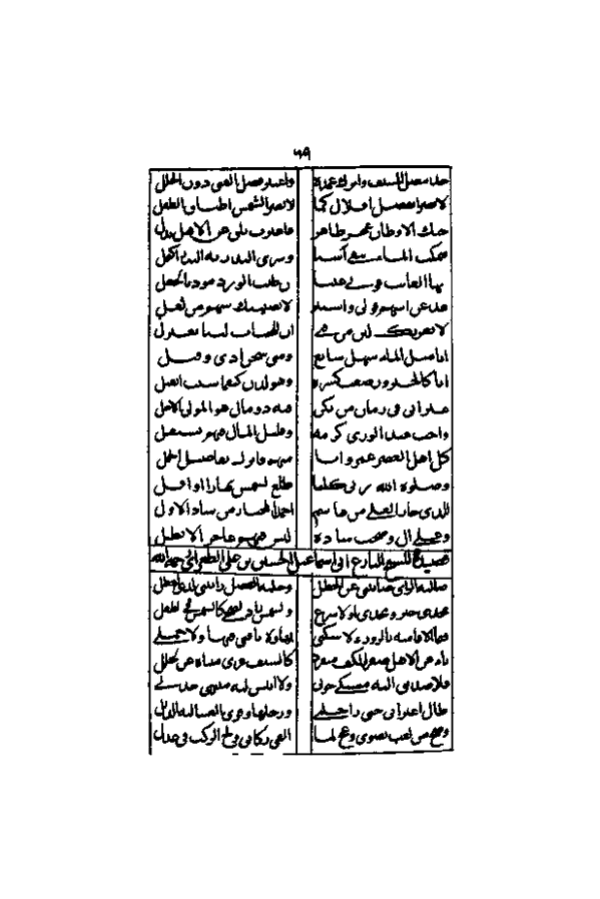 ٦٩
خذ بنصل السيف واترك غمده واعتبر فضل الفتى دون الحلل
لا يضر الفضل اقلال كما لا يضر الشمس اطباق الطفل
حبك الاوطان عجز ظاهر فاغترب تلق عن الاهل بدل
فبمكث الماء يبقى آسنا وسرى البدر به البدر اكتمل
ايها العائب قولي عبثا ان طيب الورد موذ بالجعل
عد عن اسهم قولي واستتر لا يصيبنك سهم من ثعل
لا يغرنك لين من فتى ان للحيات لينا يعتزل
انا مثل الماء سهل سايغ ومتى سخن اذى وقتل
انا كالخيزور صعب كسره وهو لدن كيفما شيت انفتل
غير اني في زمان من يكن فيه ذو مال هو المولى الاجل
واجب عند الورى اكرامه وقليل المال فيهم يستقل
كل اهل العصر غمر وانا منهم فاترك تفاصيل الجمل
وصلوة الله ربي كلما طلع الشمس نهارا او افل
للذي حاز العلى من هاشم احمد المختار من ساد الاول
وعلى ال وصحب سادة ليس فيهم عاجز الا بطل
قصيدة للشيخ البارع ابي اسماعيل الحسين بن علي الطغرائي رحمه الله
اصالة الراي صانتني عن الخطل وحلية الفضل زانتني لدى العطل
مجدي اخيرا ومجدي اولا شرع والشمس راد الضحى كالشمس في الطفل
فيم الاقامة بالزوراء لا سكني بها ولا ناقتي فيها ولا جملي
ناء عن الاهل صفر الكف منفرد كالسيف عري متناه عن الخلل
فلا صديق اليه مشتكى حزني ولا انيس اليه منتهى جذلي
طال اغترابي حتى حن راحلتي ورحلها وقرى العسالة الذبل
وضج من لغب نضوي وعج لما القى ركابي ولج الركب في عذلي